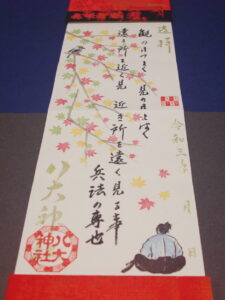 遥拝
観の目つよく 見の目よはく
遠き所を近く見 近き所を遠く見る事
兵法の専也
令和三年 月 日
八大神社
八大神社